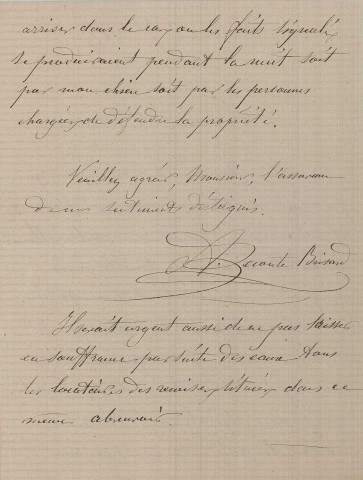 arriver dans le cas ou les faits signalés
se produiraient pendant la nuit soit
par mon chien soit par les personnes
chargées de défendre la propriété.
Veuillez agréer, Monsieur, l'assurance
de mes sentiments distingués.
Lecomte
Il serait urgent aussi de ne pas laisser
en souffrance par suite des eaux tous
les locataires des remises situées dans ce
même abreuvoir.